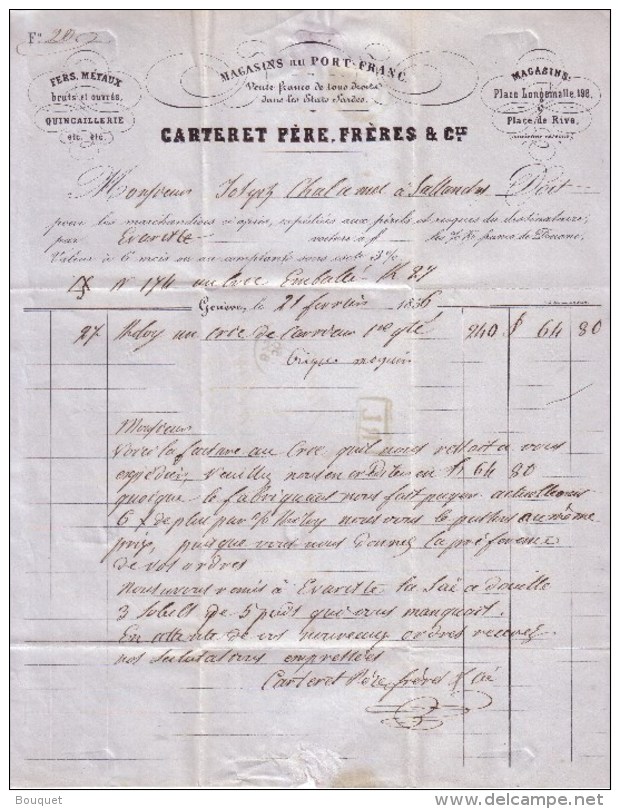 FERS, MÉTAUX
bruts et ouvrés,
QUINCAILLERIE
etc. etc.
MAGASINS au PORT-FRANC
Vente franco de tous droits
dans les États Sardes.
MAGASINS:
Place Longemalle, 198,
&
Place de Rive,
CARTERET PÈRE, FRÈRES & CIE
Monsieur Joseph à Sallanches Doit
pour les marchandises ci-après, expédiées aux périls et risques du destinataire,
par Evariste les % K° franco de Douane.
Valeur à 6 mois ou au comptant sous esc/te 3 %
N° 174 un Croc Emballé K 27
Genève, le 21 février 1856
27 un croc de 240 $ 64 80
Monsieur
Voici la facture au Croc qu'il nous restait à vous
expédier, Veuillez nous en créditer en 64 80
quoique le fabriquant nous fait payer actuellement
6 f de plus par nous vous le passons au même
prix, puisque vous nous donnez la préférence
de vos ordres
Nous avons remis à Evariste la
3 de 5 qui vous manquait.
En attente de vos nouveaux ordres recevez
nos salutations empressées
Carteret Père frères & Cie
Bouquet
© www.delcampe.net